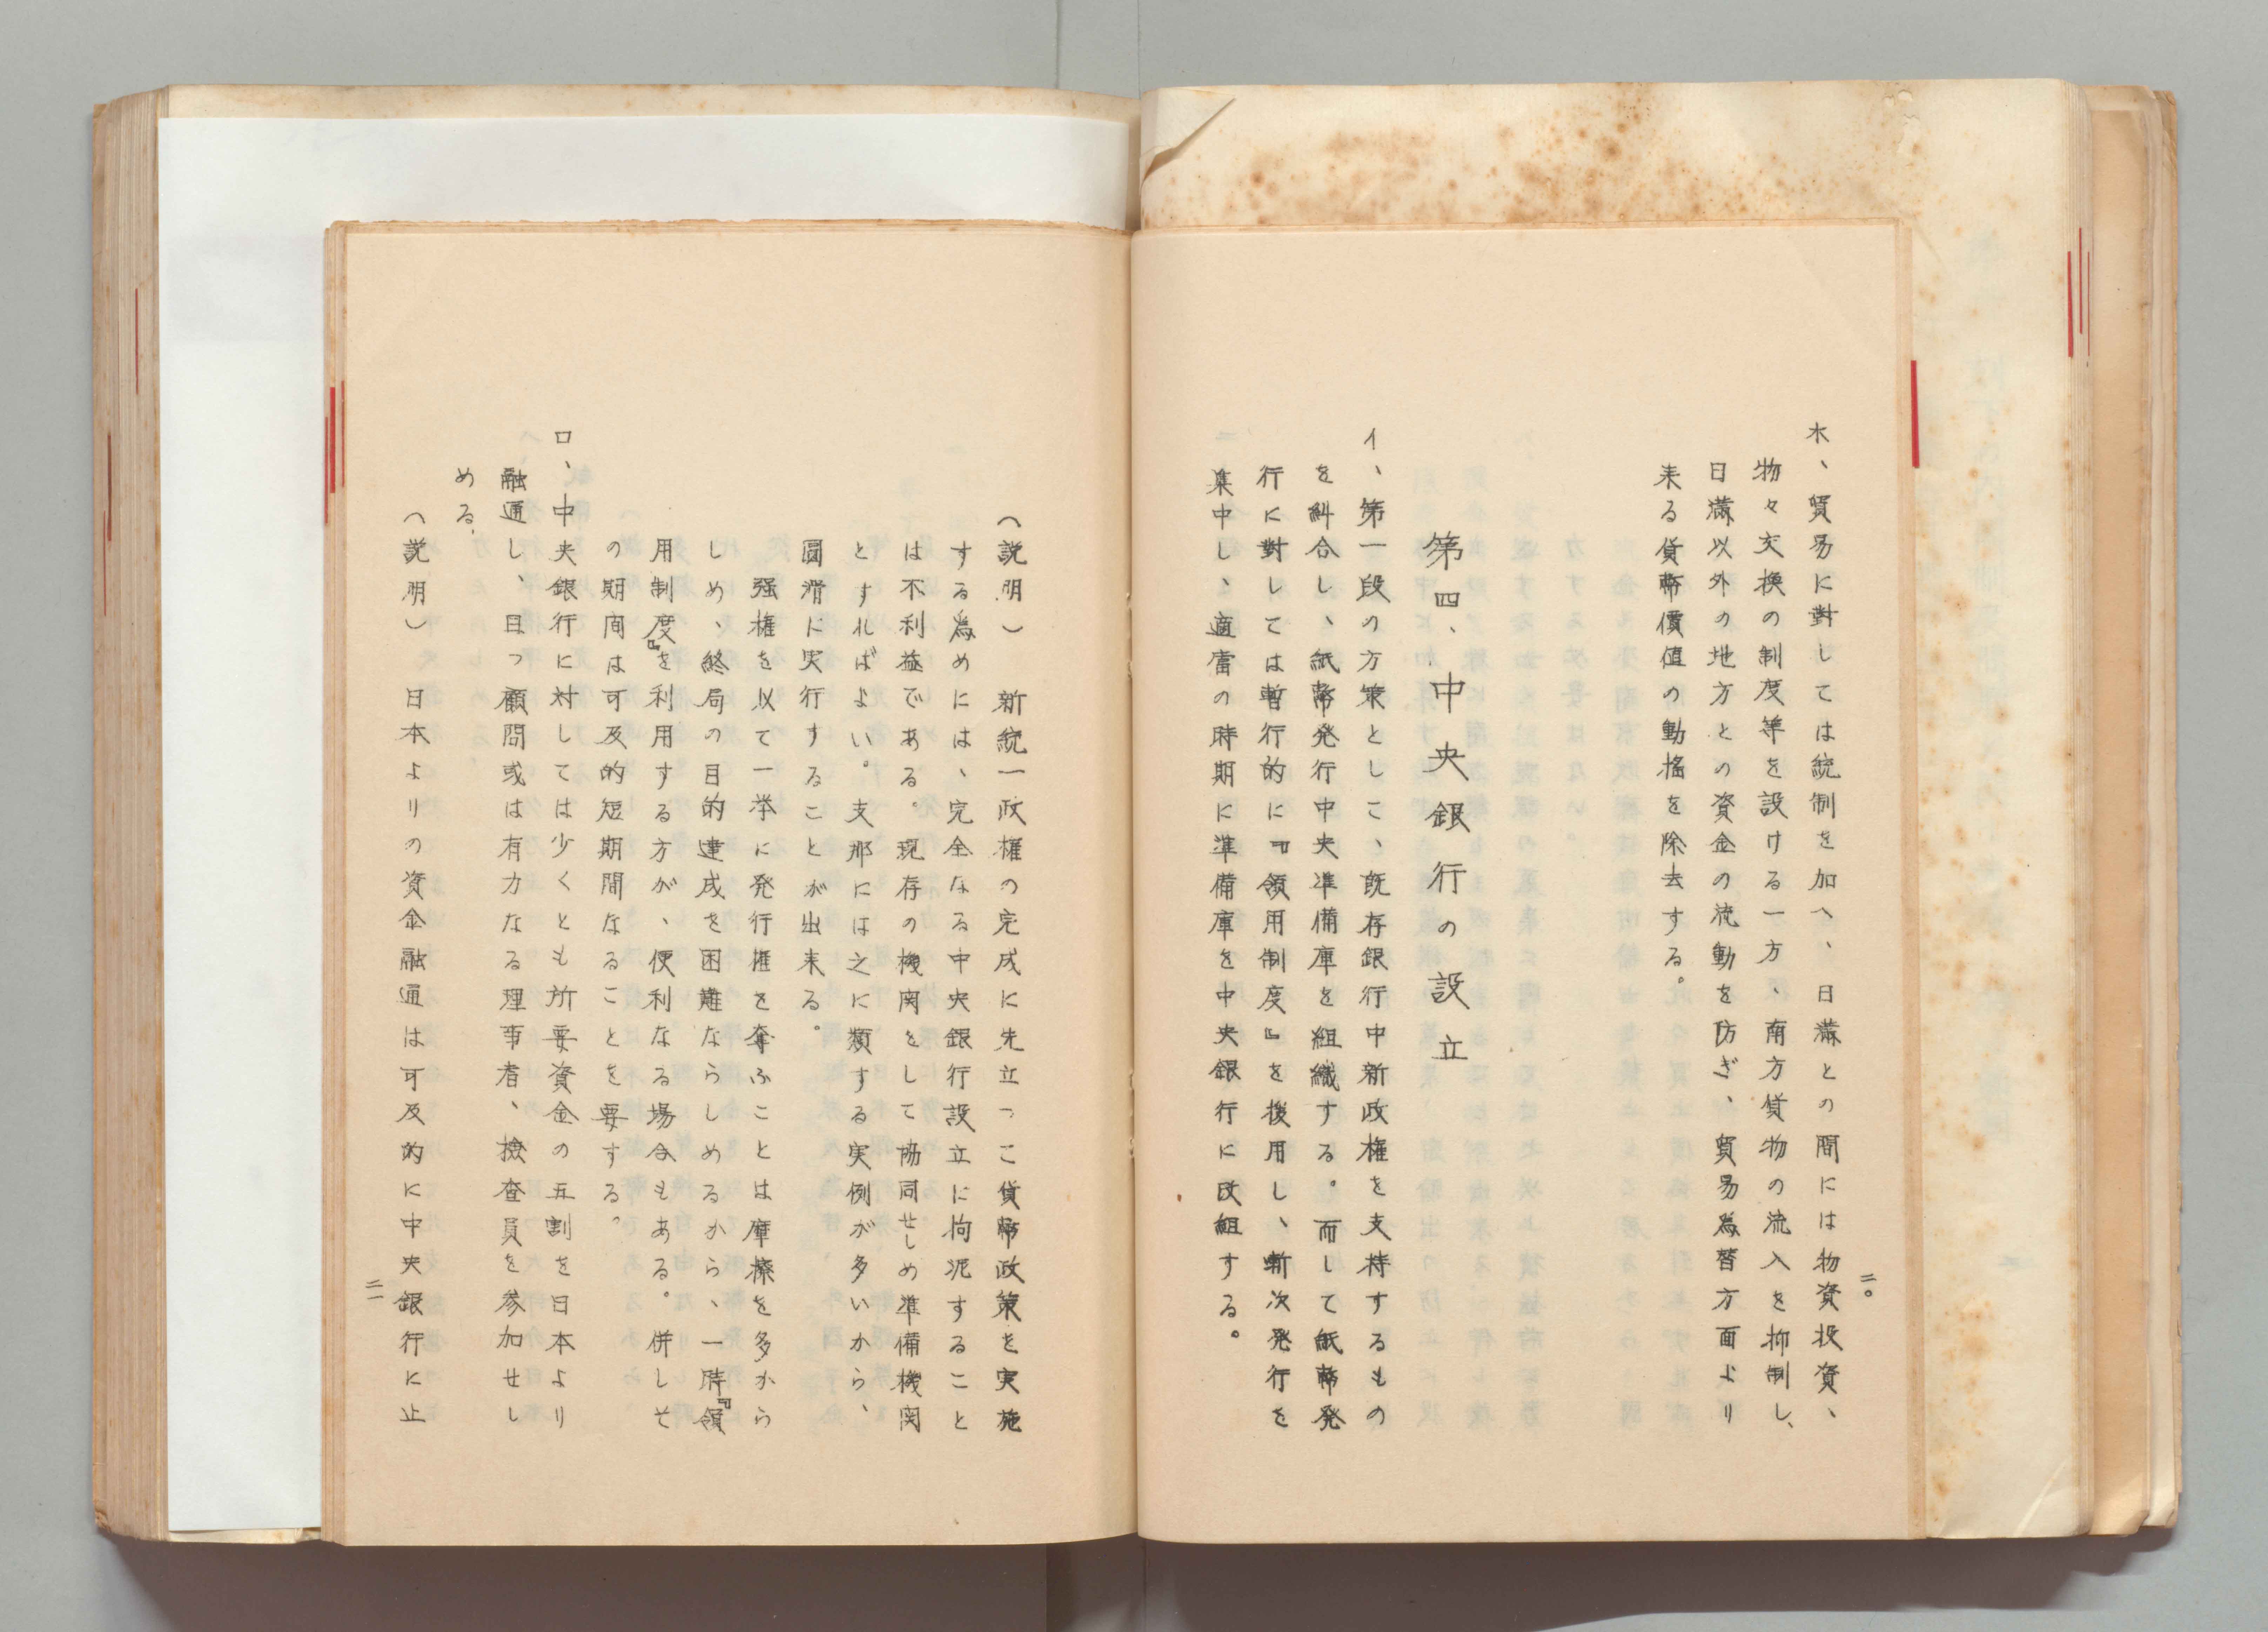 二〇
ホ、貿易に對しては統制を加へ、日滿との間には物資投資、
物々交換の制度等を設ける一方、南方貨物の流入を抑制し、
日滿以外の地方との資金の流動を防ぎ、貿易為替方面より
来る貨幣價値の動搖を除去する。
第四、中央銀行の設立
イ、第一段の方策として、既存銀行中新政権を支持するもの
を糾合し、紙幣発行中央準備庫を組織する。而して紙幣発
行に對しては暫行的に『領用制度』を援用し、漸次発行を
集中し、適當の時期に準備庫を中央銀行に改組する。
(説明) 新統一政権の完成に先立って貨幣政策を実施
する為めには、完全なる中央銀行設立に拘泥すること
は不利益である。現存の機関をして協同せしめ準備機関
とすればよい。支那には之に類する実例が多いから、
圓滑に実行することが出来る。
强権を以て一挙に発行権を奪ふことは摩擦を多から
しめ、終局の目的達成を困難ならしめるから、一時『領
用制度』を利用する方が、便利なる場合もある。併しそ
の期間は可及的短期間なることを要する。
ロ、中央銀行に対しては少くとも所要資金の五割を日本より
融通し、且つ顧問或は有力なる理事者、檢査員を参加せし
める、
(説明) 日本よりの資金融通は可及的に中央銀行に止
二一